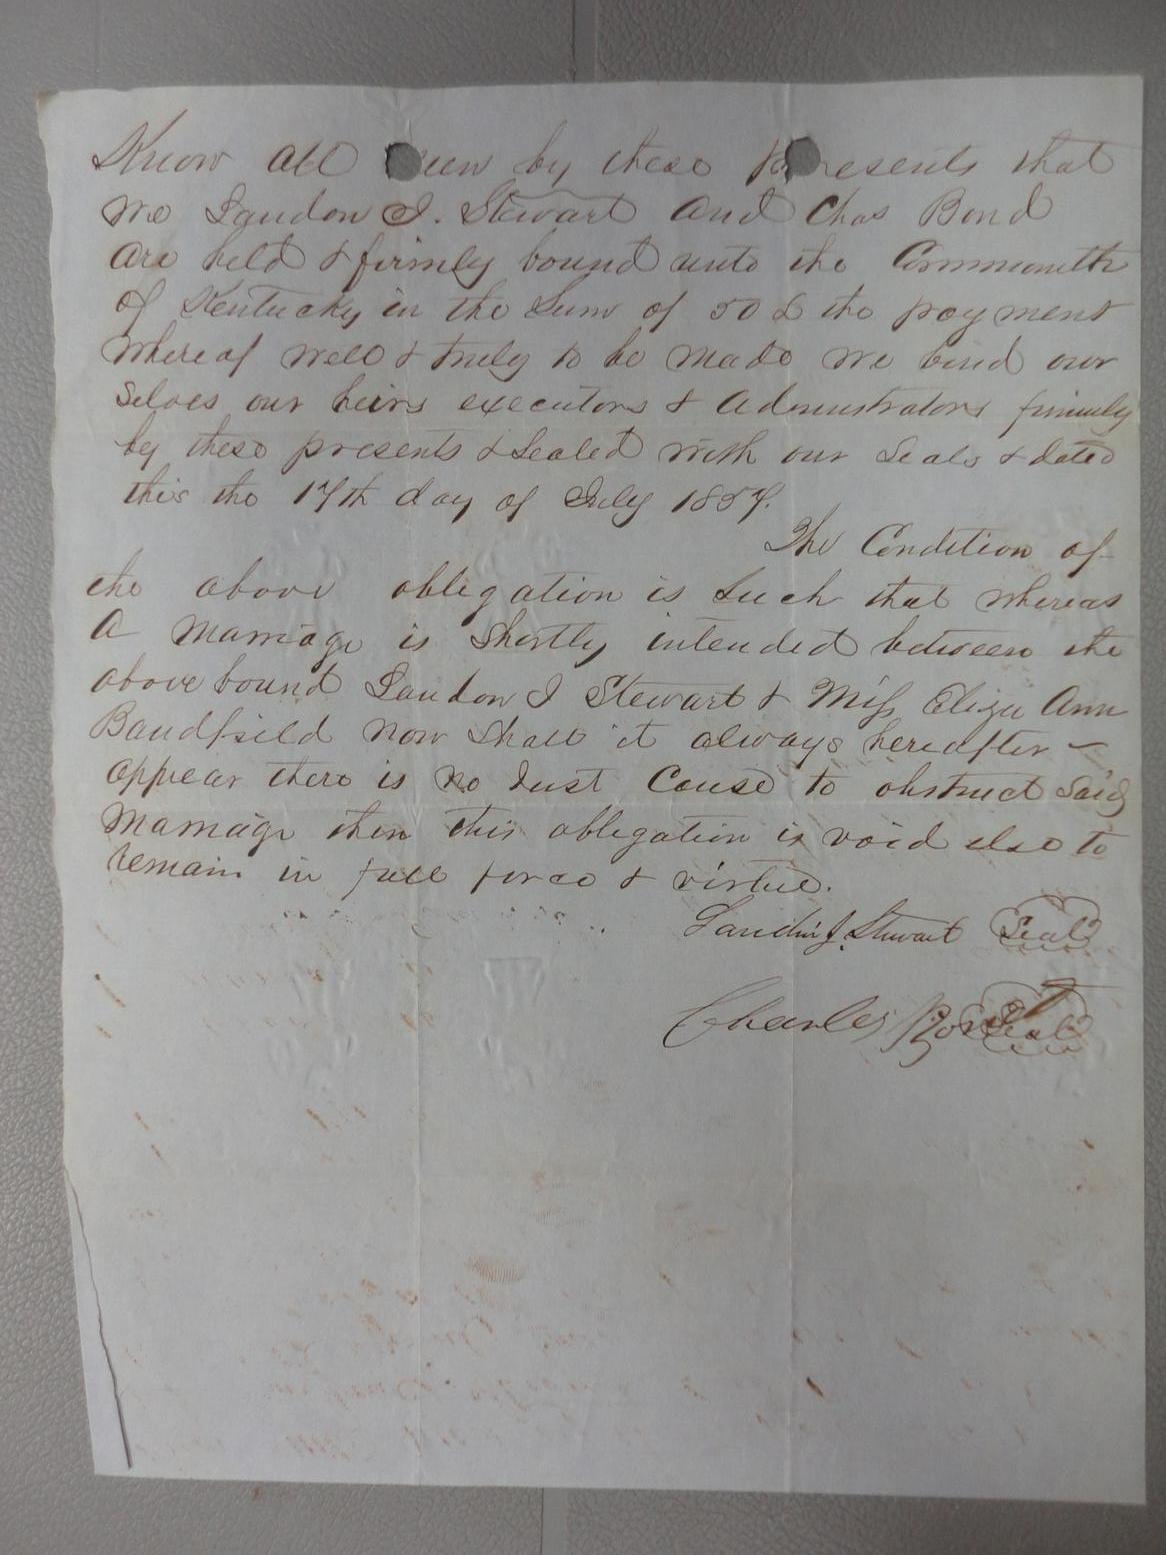 Know all men by these presents that
we Landon J. Stewart and Chas Bond
are held & firmly bound unto the Commonwlth
of Kentucky in the Sum of 50 £ the payment
whereof well & truly to be made we bind our
selves our heirs executors & administrators firmly
by these presents & sealed with our seals & dated
this the 17th day of July 1857.
The Condition of
the above obligation is such that whereas
A marriage is shortly intended between the
above bound Landon J Stewart & Miss Eliza Ann
Bandfield now shall it always hereafter
appear there is no Just Cause to obstruct Said
marriage then this obligation is void else to
remain in full force & virtue.
Landon J. Stewart Seal
Charles Bond Seal